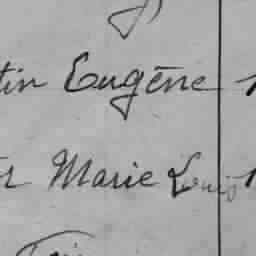 tin Eugène
r Marie Louis